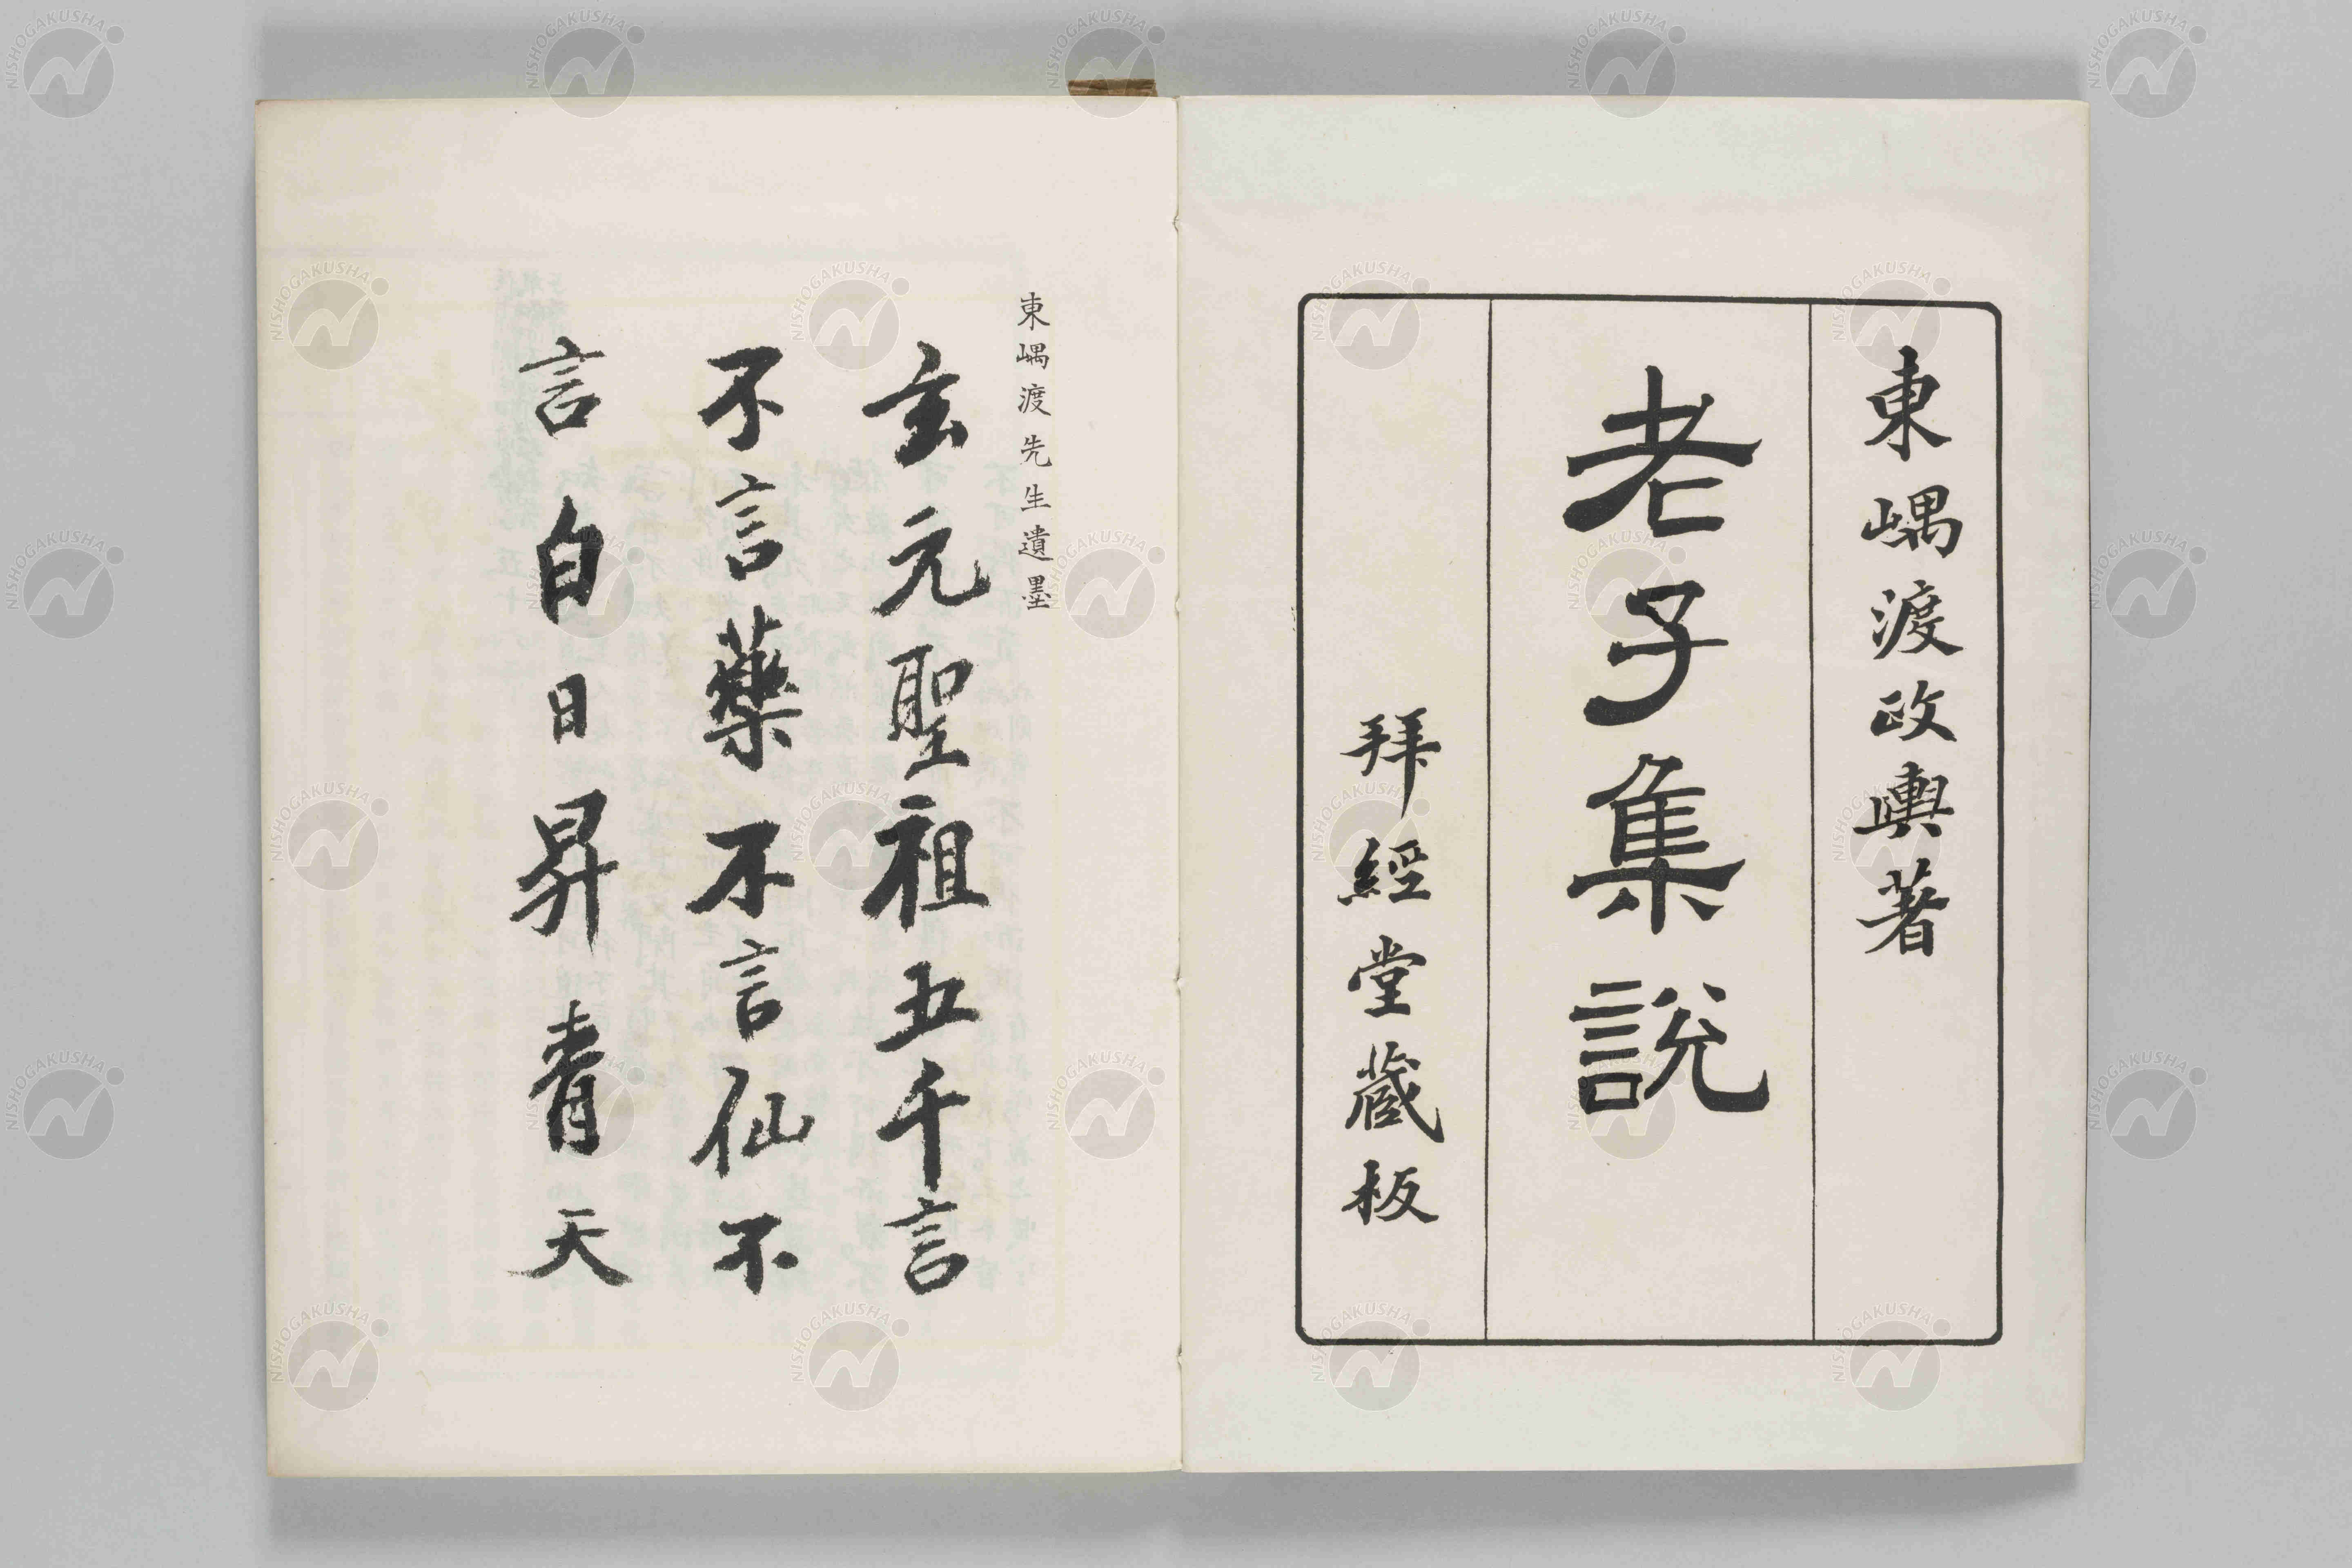 東嵎渡政輿著
老子集說
拜經堂藏板
東嵎渡先生遺墨
玄元聖祖五千言
不言藥不言仙不
言白日昇青天
NISHOGAKUSHA